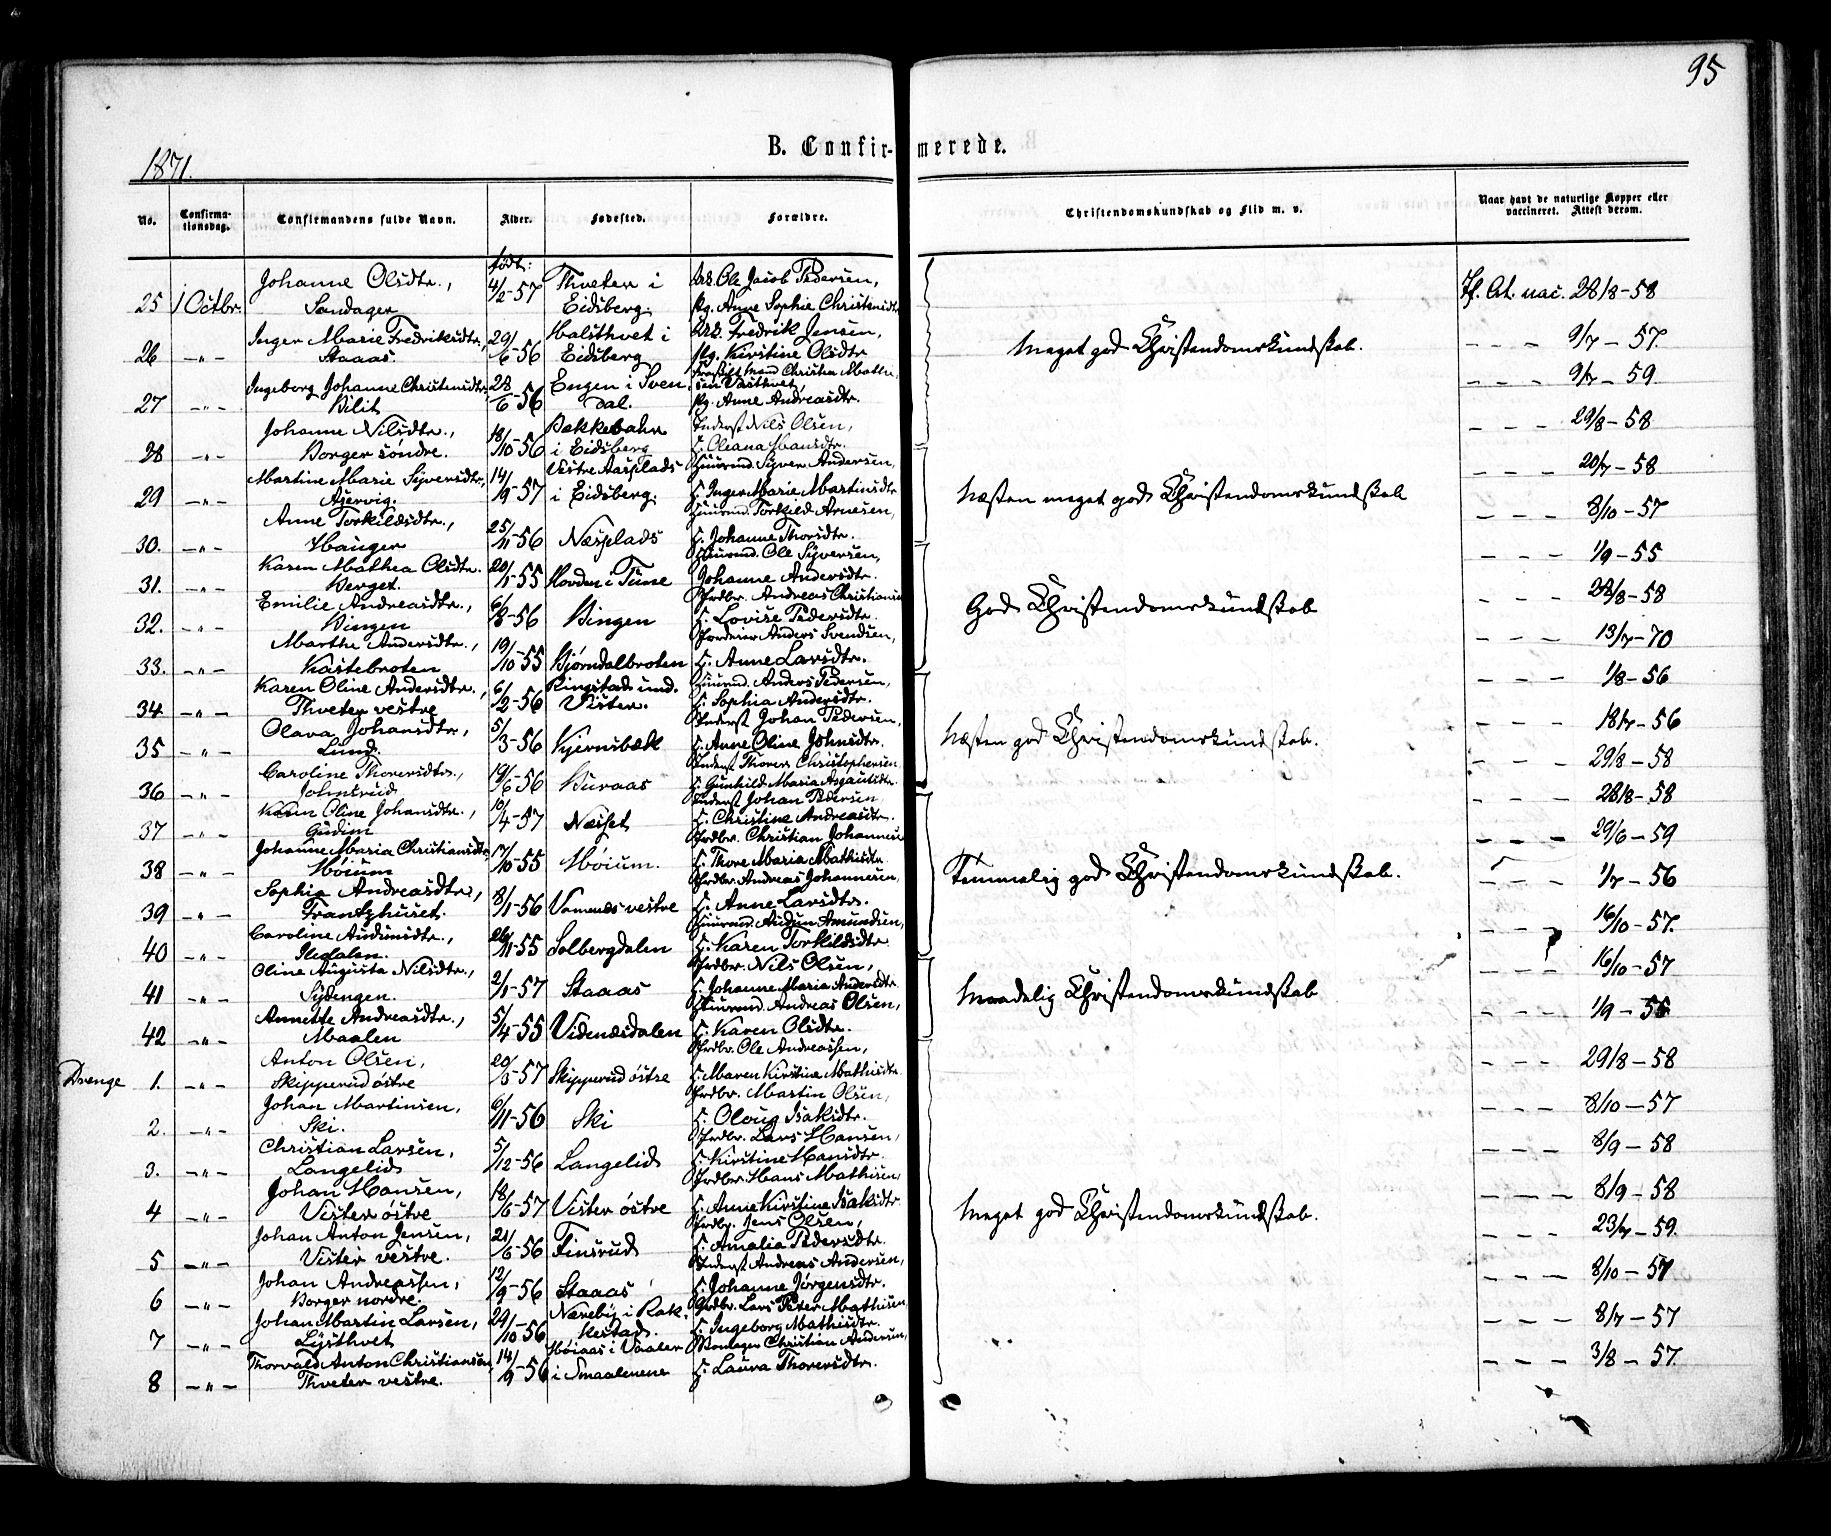 95
1871.
B. Confirmerede.
No. Confirmationsdag. Confirmandens fulde Navn. Alder. Fødested. Forældre. Christendomskundskab og Flid m. v. Naar havt de naturlige Kopper eller vaccineret. Attest derom.
født:
Johanne Olsdtr., Thveter i Ole Jacob Pedersen,
25 1 Octbr. Søndager 4/2-57 Eidsberg. Pg. Anne Sophie Christensdtr At. vac. 28/8-58
Inger Marie Fredriksdtr., Halsthvet i Fredrik Jensen,
26 -"- Staaas 29/6-56 Eidsberg Pg. Kirstine Olsdtr Meget god Christendomskundskab. - - - 9/7-57.
Ingeborg Johanne Christensdtr Engen i Sven Christen Mathi
27 -"- Bilit 28/6-56 dal. sen Pg. Anne Andreasdtr. - - - 9/7-59.
Johanne Nilsdtr., Inderst Nils Olsen,
28 -"- Borger søndre. 18/10-56 i Eidsberg H. Oleana Hansdtr. - - - 29/8-58
Martine Marie Syversdtr., Vestre Aasplads Huusmd. Syver Andersen,
29 -"- Aservig. 14/9-57 i Eidsberg. H. Inger Marie Martinsdtr Næsten meget god Christendomskundskab - - - 20/7-58
Anne Torkildsdtr., Huusmd. Torkild Arnesen,
30. -"- Hauger 25/11-56 Næsplads H. Johanne Thorsdtr. - - - 8/10-57
Karen Mathea Olsdtr. Huusmd. Ole Syversen,
31. -"- Berget. 20/1-55 Hovden i Tune Johanne Andersdtr. - - - 1/9-55
Emilie Andreasdtr., Grdbr. Andreas Christiansen
32. -"- Bingen 6/8-56 Bingen H. Lovise Pedersdtr. God Christendomskundskab - - - 28/8-58
Marthe Andersdtr., Anders Svendsen,
33. -"- Kastebroten 19/10-55 Bjørndalbroten H. Anne Larsdtr. - - - 13/7-70
Karen Oline Andersdtr., Ringstad und. Huusmd. Anders Pedersen,
34 -"- Thveter vestre 6/2-56 Vister. H. Sophia Andersdtr. - - - 1/8-56
Olava Johansdtr., Inderst Johan Pedersen,
35 -"- Lund. 5/3-56 Kjernsbæk H. Anne Oline Johnsdtr. Næsten god Christendomskundskab. - - - 18/7-56
Caroline Thorersdtr., Inderst Thorers Christophersen
36 -"- Johnsrud 19/6-56 Buraas H. Gunhild Maria Asgautsdtr. - - - 29/8-58
Karen Oline Johansdtr., Inderst Johan Pedersen,
37 -"- Gudim 10/4-57 Næsset H. Christine Andreasdtr. - - - 28/8-58
Johanne Maria Christiansdtr, Grdbr. Christian Johannesen
38 -"- Høium 17/10-55 Høium. H. Thore Maria Mathisdtr - - - 29/6-59
Sophia Andreasdtr., Grdbr. Andreas Johannesen,
39 -"- Frantzhuset. 8/1-56 Vamnæs vestre H. Anne Larsdtr. Temmelig god Christendomskundskab. - - - 1/7-56
Caroline Audunsdtr., Huusmd. Audun Amundsen,
40 -"- 26/11-55 Solbergdalen H. Karen Torkildsdtr - - - 16/10-57.
Oline Augusta Nilsdtr., Grdbr. Nils Olsen,
41 -"- Sydengen. 2/1-57 Staaas H. Johanne Maria Andersdtr - - - 16/10-57
Annette Andreasdtr., Huusmd. Andreas Olsen,
42 -"- Maalen 5/4-55 Videnæsdalen H. Karen Olsdtr. Maadelig Christendomskundskab - - - 1/9-56
Anton Olsen, Grdbr. Ole Andreassen,
Drenge 1. -"- Skipperud østre 20/5-57 Skipperud østre H. Maren Kirstine Mathisdtr - - - 29/8-58
Johan Martinsen, Grdbr. Martin Olsen,
2. -"- Ski. 6/11-56 Ski H. Oloug Isaksdtr. - - - 8/10-57
Christian Larsen, Grdbr. Lars Hansen,
3. -"- Langelid 5/12-56 Langelid H. Kirstine Hansdtr. - - - 8/9-58
Johan Hansen, Grdbr. Hans Mathisen,
4 -"- Vister østre 18/6-57 Vister østre H. Anne Kirstine Isaksdtr Meget god Christendomskundskab. - - - 8/9-58
Johan Anton Jensen, Grdbr. Jens Olsen,
5 -"- Vister vestre. 21/6-56 Finsrud H. Amalia Pedersdtr. - - - 23/7-59.
Johan Andreassen, Inderst Andreas Andersen,
6 -"- Borger nordre. 12/9-56 Staaas H. Johanne Jørgensdtr. - - - 8/10-57
Johan Martin Larsen, Næreby i Rak Grdbr. Lars Peter Mathisen,
7 -"- Lysthvet 29/10-56 kestad. H. Ingeborg Mathisdtr. - - - 8/7-57
Thorvald Anton Christiansen, Høiaas i Vaaler Christian Andersen,
8 -"- Thveter vestre. 14/9-56 i Smaalenene H. Laura Thorersdtr. - - - 3/8-57.